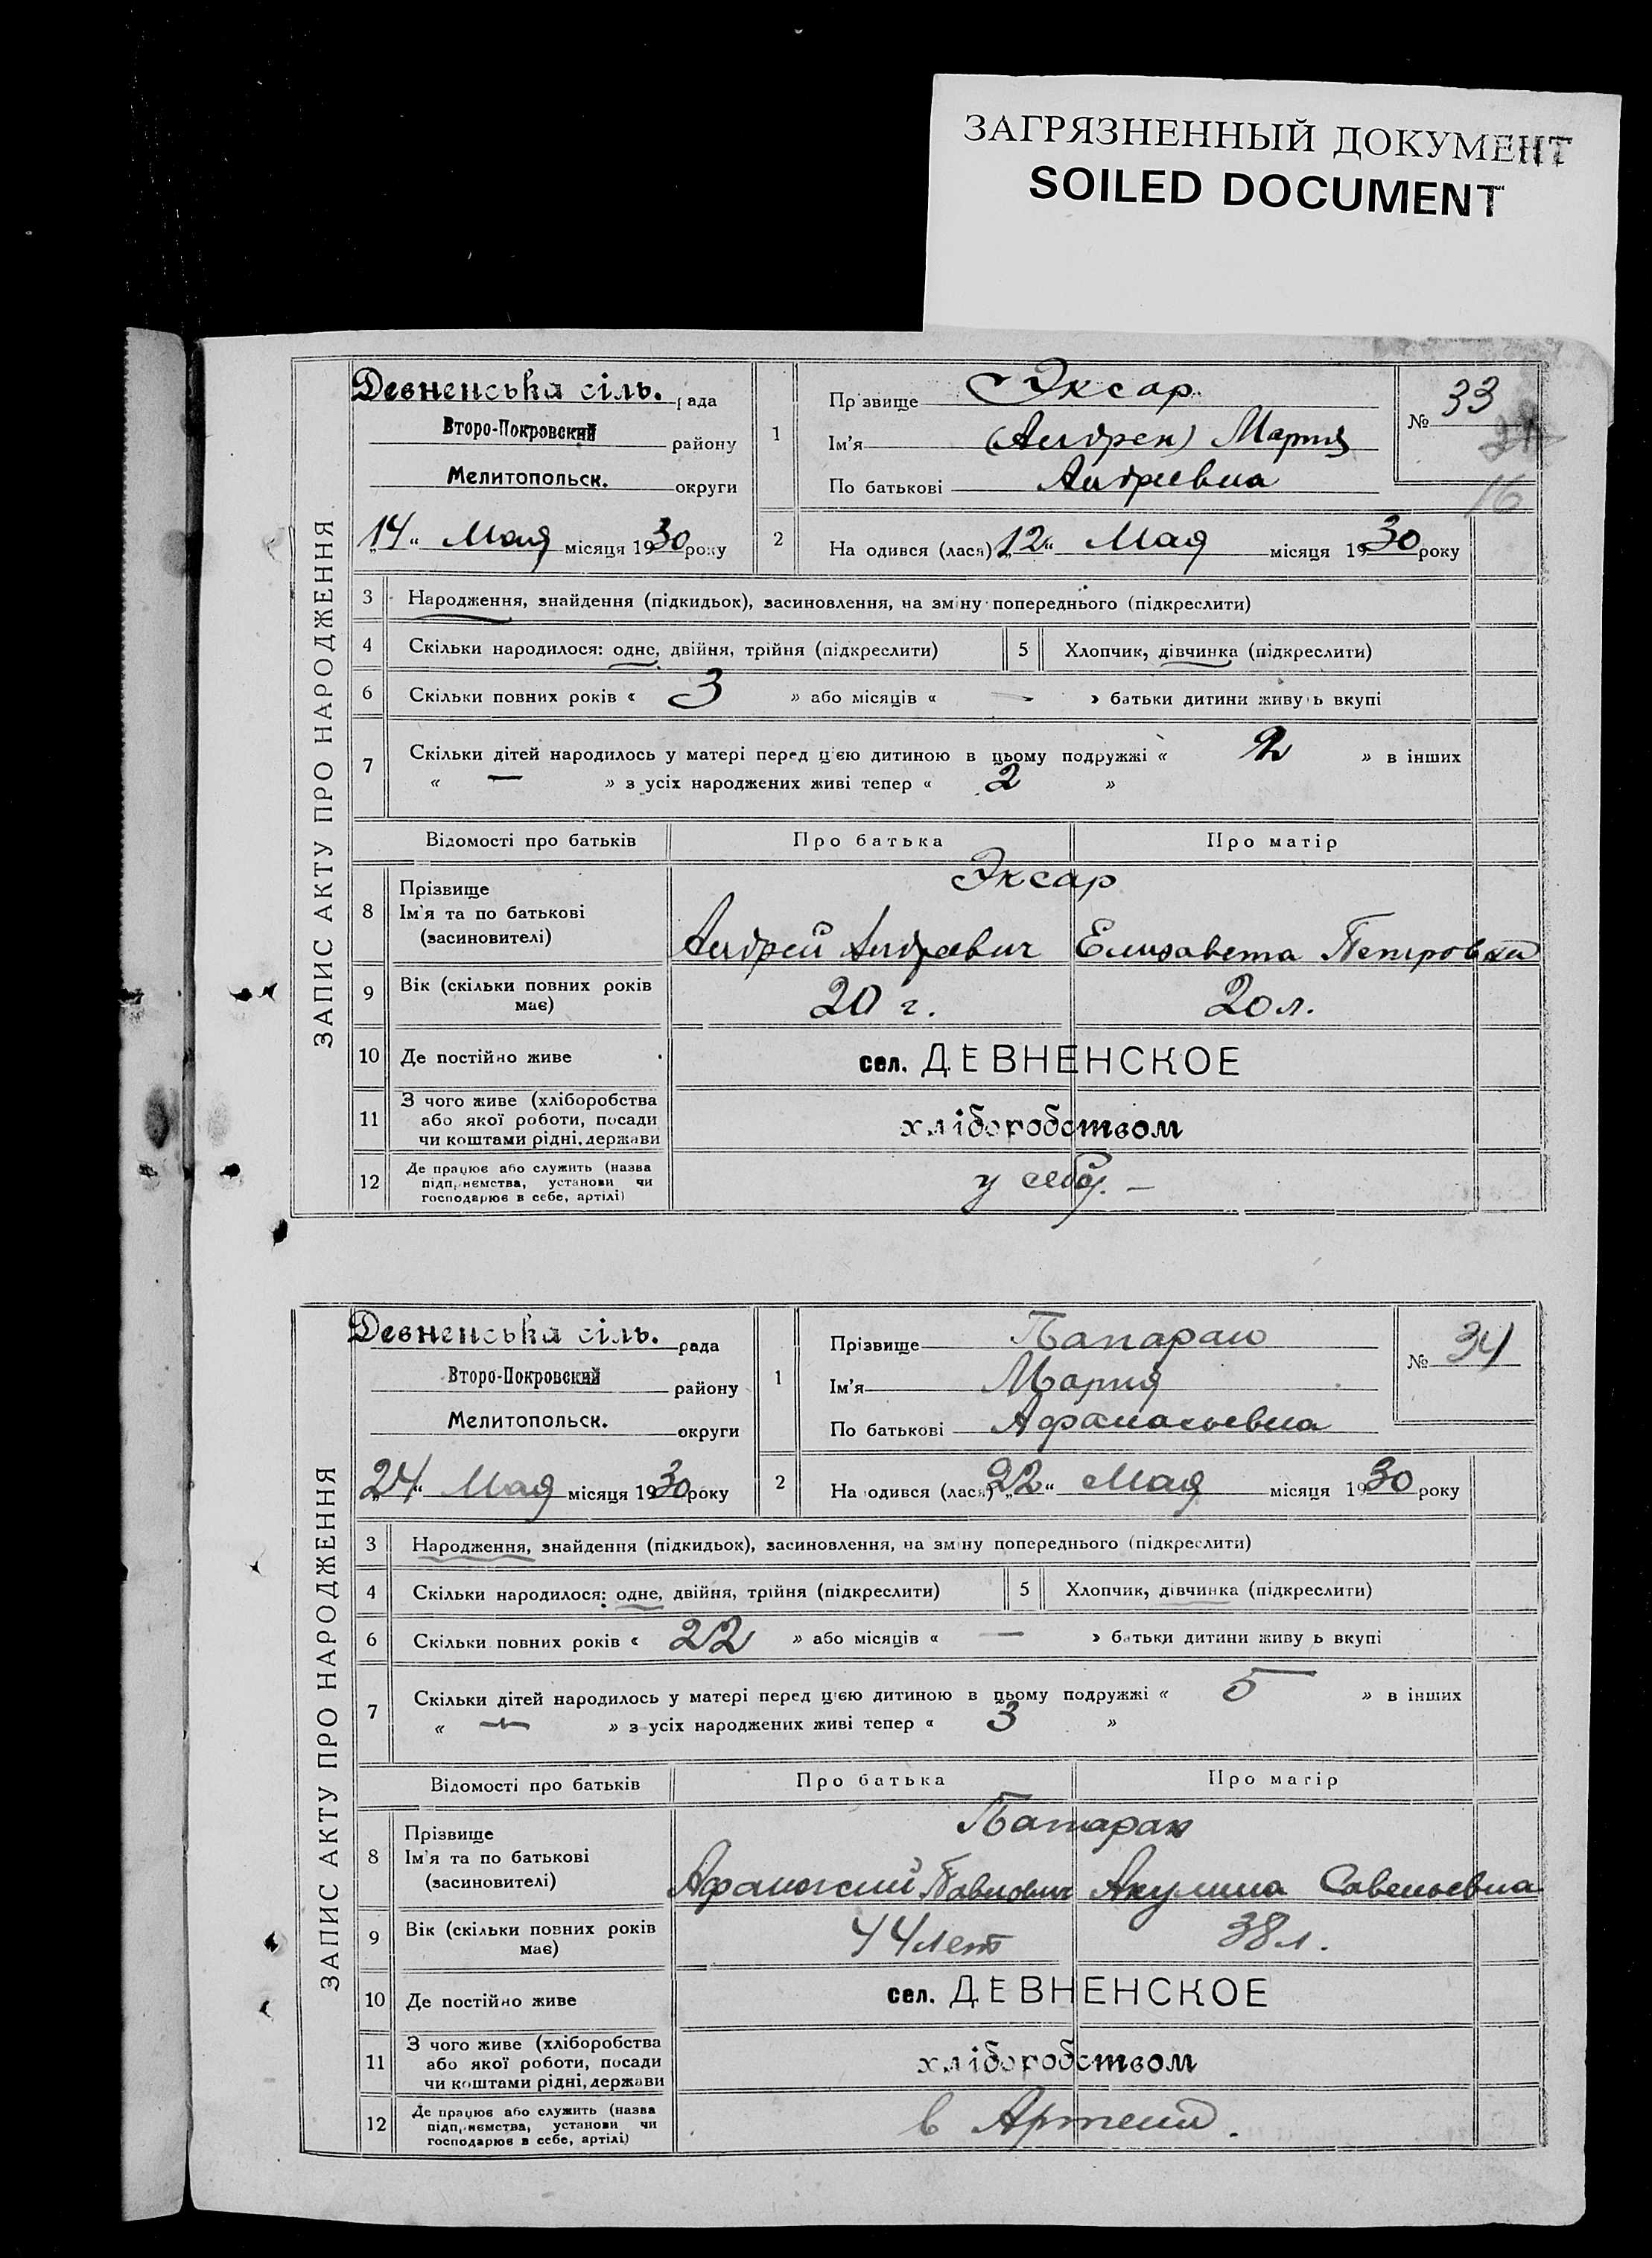 ЗАГРЯЗНЕННЫЙ ДОКУМЕНТ
SOILED DOCUMENT
ЗАПИС АКТУ ПРО НАРОДЖЕННЯ
Девненська сіль. рада
Второ-Покровский району
Мелитопольск. округи
"14" Мая місяця 1930 року
1
Прізвище Эксар
Ім'я (Андрен) Мария
По батькові Андреевна
№ 33
16
2
Народився (лася) "12" Мая місяця 1930 року
3 Народження, знайдення (підкидьок), засиновлення, на зміну попереднього (підкреслити)
4 Скільки народилося: одне, двійня, трійня (підкреслити)
5 Хлопчик, дівчинка (підкреслити)
6 Скільки повних років « 3 » або місяців « — » батьки дитини живуть вкупі
7 Скільки дітей народилось у матері перед цією дитиною в цьому подружжі « 2 » в інших
« — » з усіх народжених живі тепер « 2 »
Відомості про батьків Про батька Про матір
8 Прізвище Эксар
Ім'я та по батькові
(засиновителі) Андрей Андреевич Елизавета Петровна
9 Вік (скільки повних років
має) 20 г. 20 л.
10 Де постійно живе сел. ДЕВНЕНСКОЕ
11 З чого живе (хліборобства
або якої роботи, посади
чи коштами рідні, держави хліборобством
12 Де працює або служить (назва
підприємства, установи чи
господарює в себе, артілі) у себя. —
ЗАПИС АКТУ ПРО НАРОДЖЕННЯ
Девненська сіль. рада
Второ-Покровский району
Мелитопольск. округи
"24" Мая місяця 1930 року
1
Прізвище
Ім'я Мария
По батькові Афанасьевна
№ 34
2
Народився (лася) "22" Мая місяця 1930 року
3 Народження, знайдення (підкидьок), засиновлення, на зміну попереднього (підкреслити)
4 Скільки народилося: одне, двійня, трійня (підкреслити)
5 Хлопчик, дівчинка (підкреслити)
6 Скільки повних років « 22 » або місяців « — » батьки дитини живуть вкупі
7 Скільки дітей народилось у матері перед цією дитиною в цьому подружжі « 5 » в інших
« — » з усіх народжених живі тепер « 3 »
Відомості про батьків Про батька Про матір
8 Прізвище
Ім'я та по батькові
(засиновителі) Афанасий Павлович Акулина Савельевна
9 Вік (скільки повних років
має) 44 лет 38 л.
10 Де постійно живе сел. ДЕВНЕНСКОЕ
11 З чого живе (хліборобства
або якої роботи, посади
чи коштами рідні, держави хліборобством
12 Де працює або служить (назва
підприємства, установи чи
господарює в себе, артілі) в Артели.